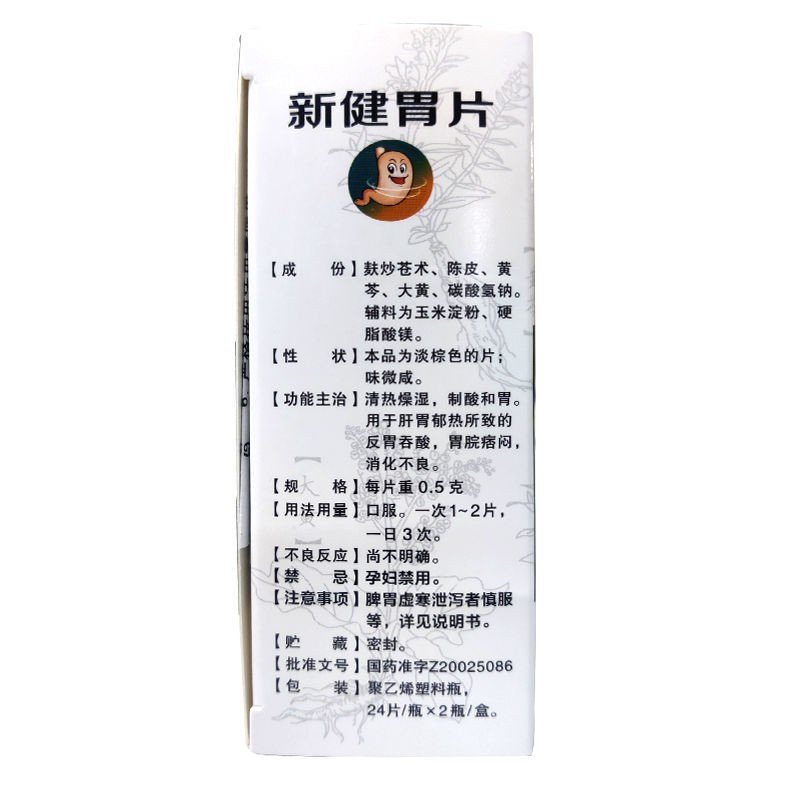 新健胃片
【成 份】麸炒苍术、陈皮、黄
芩、大黄、碳酸氢钠。
辅料为玉米淀粉、硬
脂酸镁。
【性 状】本品为淡棕色的片；
味微咸。
【功能主治】清热燥湿，制酸和胃。
用于肝胃郁热所致的
反胃吞酸，胃脘痞闷，
消化不良。
【规 格】每片重0.5克
【用法用量】口服。一次1~2片，
一日3次。
【不良反应】尚不明确。
【禁 忌】孕妇禁用。
【注意事项】脾胃虚寒泄泻者慎服
等，详见说明书。
【贮 藏】密封。
【批准文号】国药准字Z20025086
【包 装】聚乙烯塑料瓶，
24片/瓶×2瓶/盒。
【大黄】